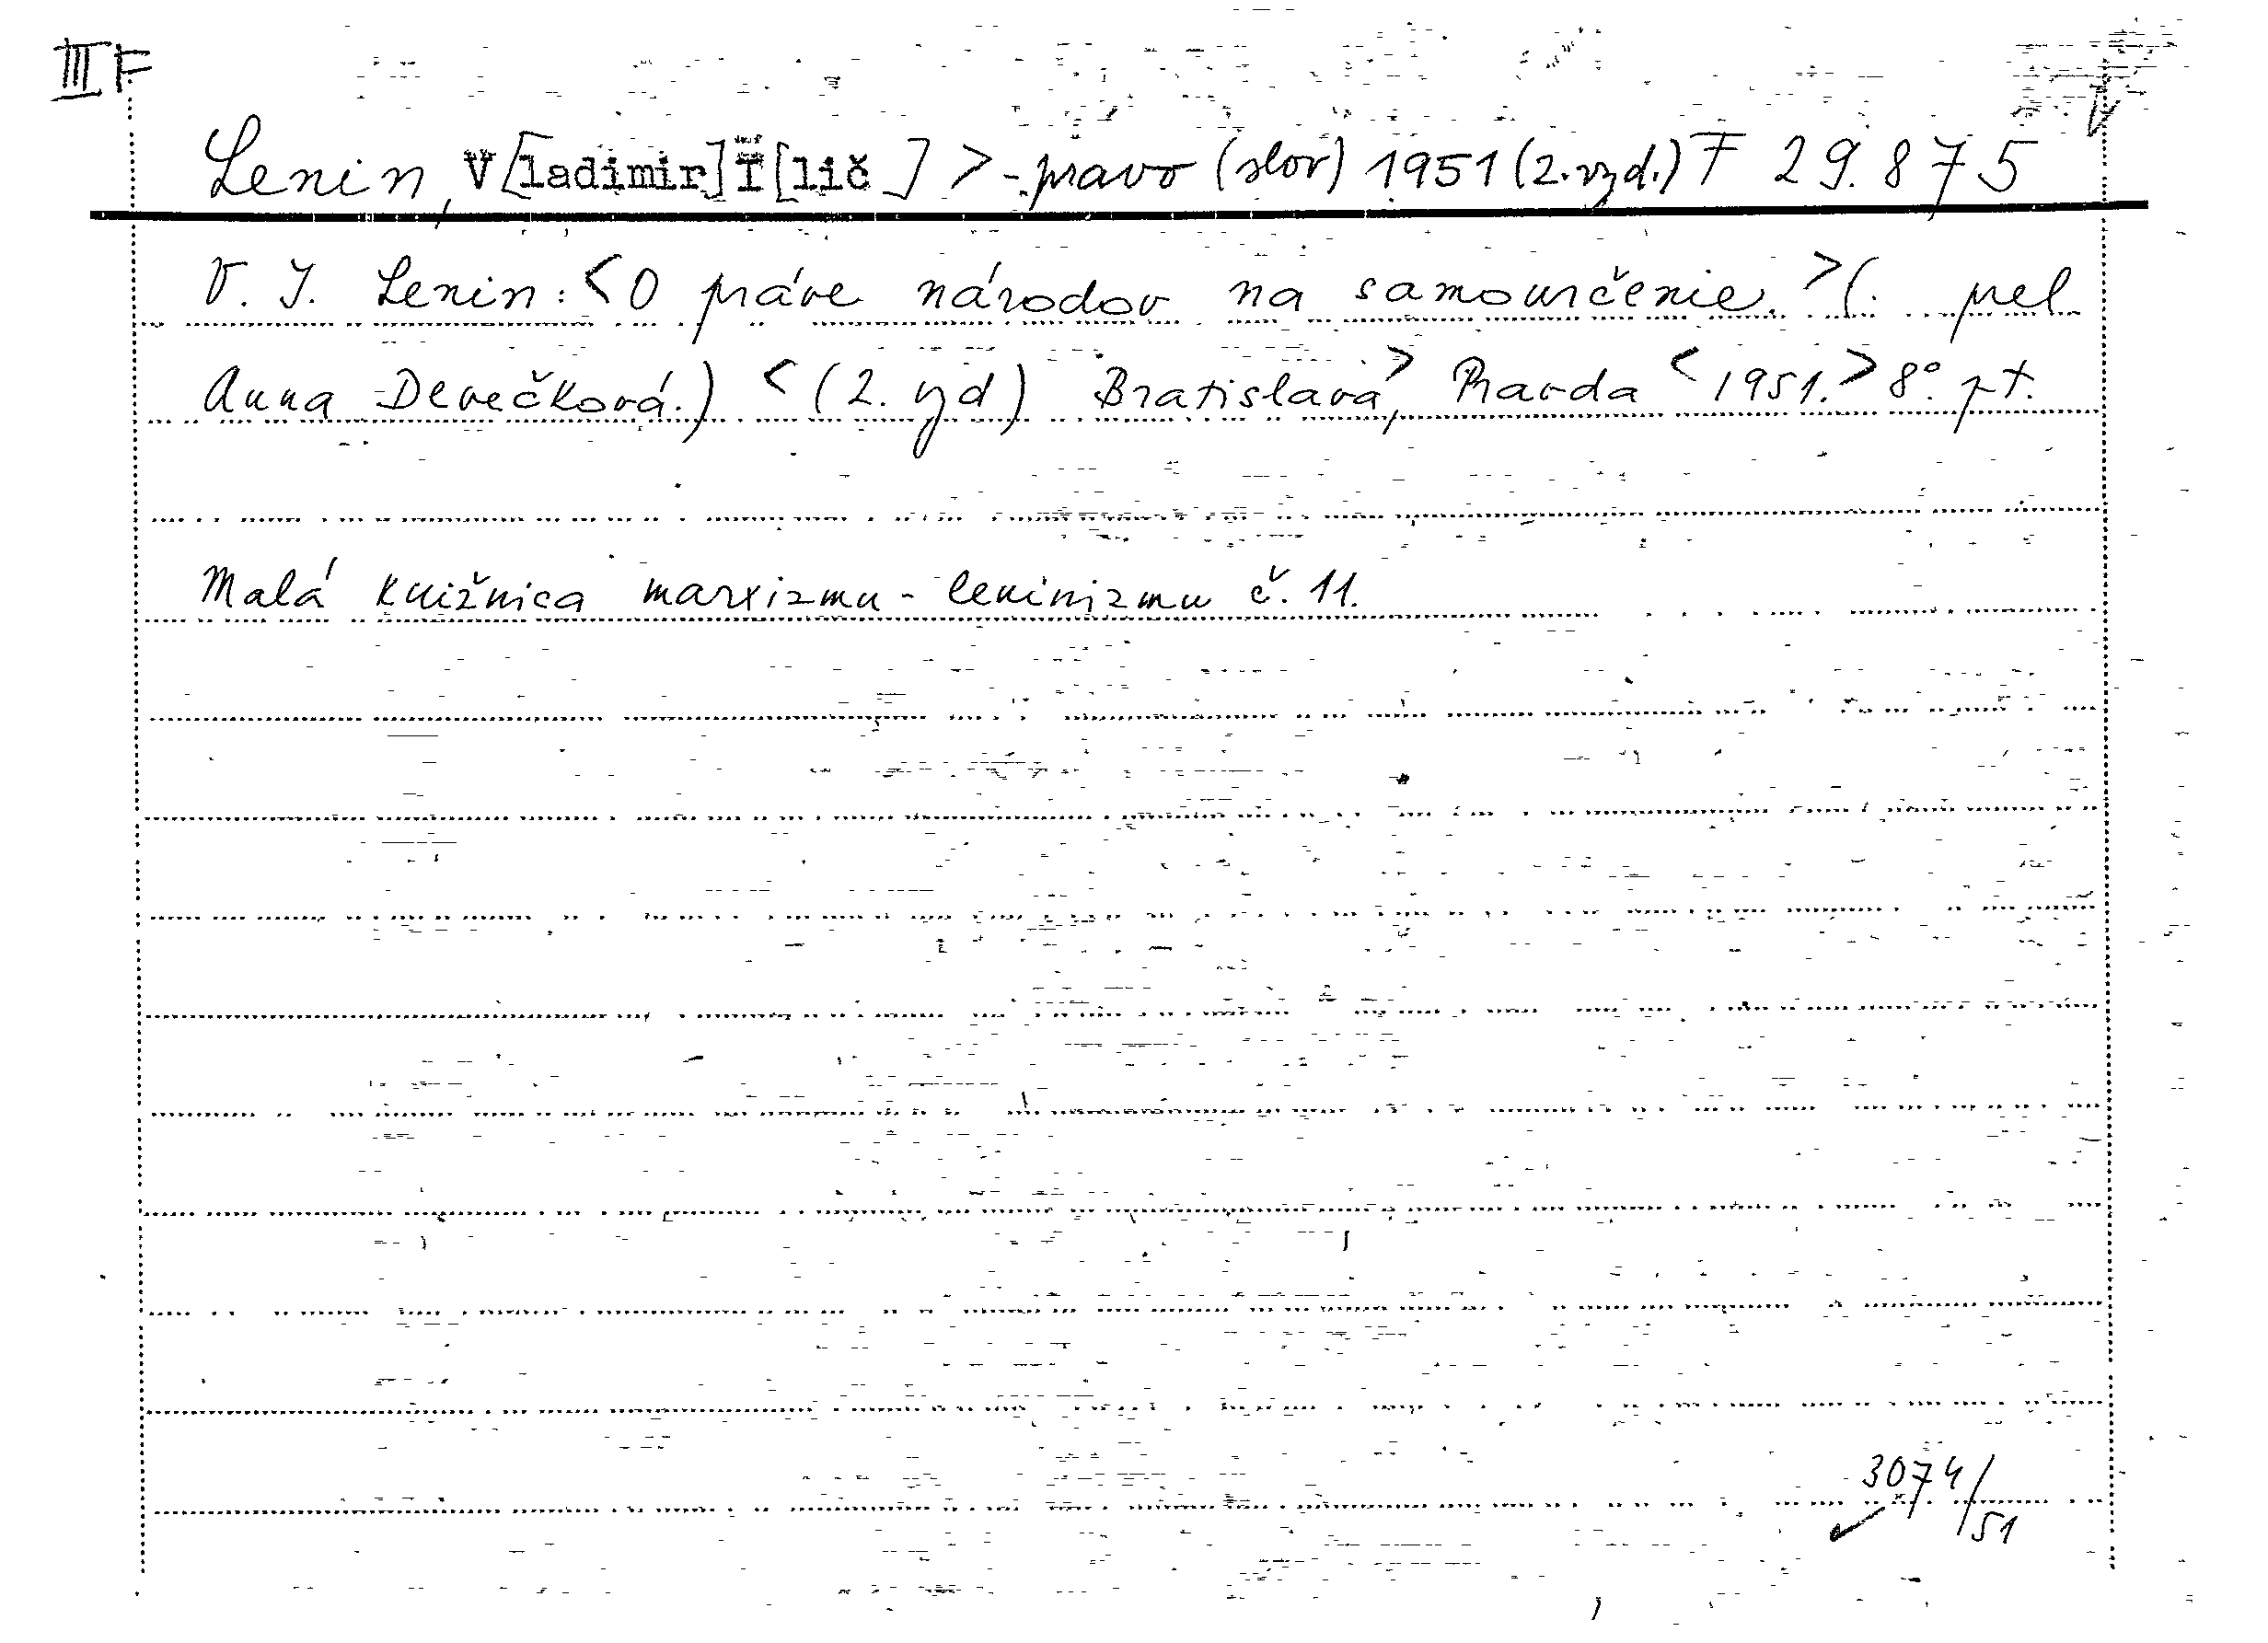 III F
Lenin, V[ladimir] I[lič] > - pravo (slov) 1951 (2. vyd.) F 29.875
V. I. Lenin: <O práve národov na samourčenie.> (: prel
Anna Devečková.) <(2. vyd) Bratislava,> Pravda <1951.> 8°. pt.
Malá knižnica marxizmu-leninizmu č. 11.
3074/51